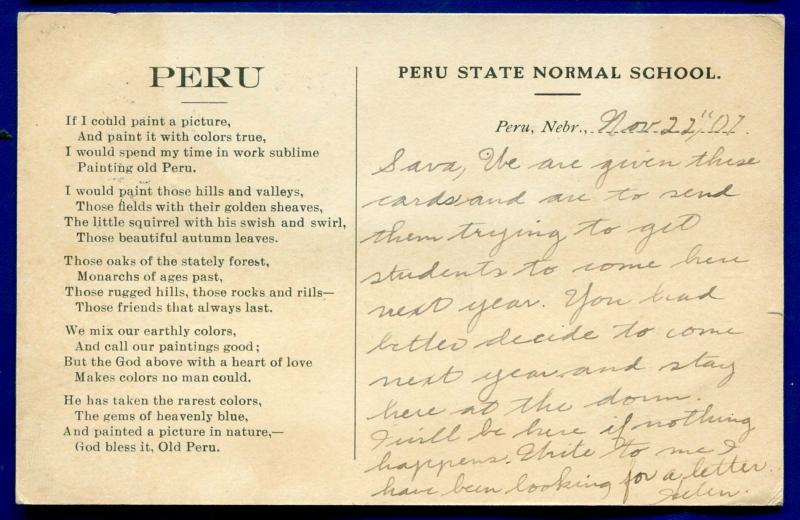 PERU
If I could paint a picture,
And paint it with colors true,
I would spend my time in work sublime
Painting old Peru.
I would paint those hills and valleys,
Those fields with their golden sheaves,
The little squirrel with his swish and swirl,
Those beautiful autumn leaves.
Those oaks of the stately forest,
Monarchs of ages past,
Those rugged hills, those rocks and rills—
Those friends that always last.
We mix our earthly colors,
And call our paintings good;
But the God above with a heart of love
Makes colors no man could.
He has taken the rarest colors,
The gems of heavenly blue,
And painted a picture in nature,—
God bless it, Old Peru.
PERU STATE NORMAL SCHOOL.
Peru, Nebr., Nov. 22" 07.
Sava, We are given these
cards and are to send
them trying to get
students to come here
next year. You had
better decide to come
next year and stay
here at the dorm.
I will be here if nothing
happens. Write to me I
have been looking for a letter.
Helen.